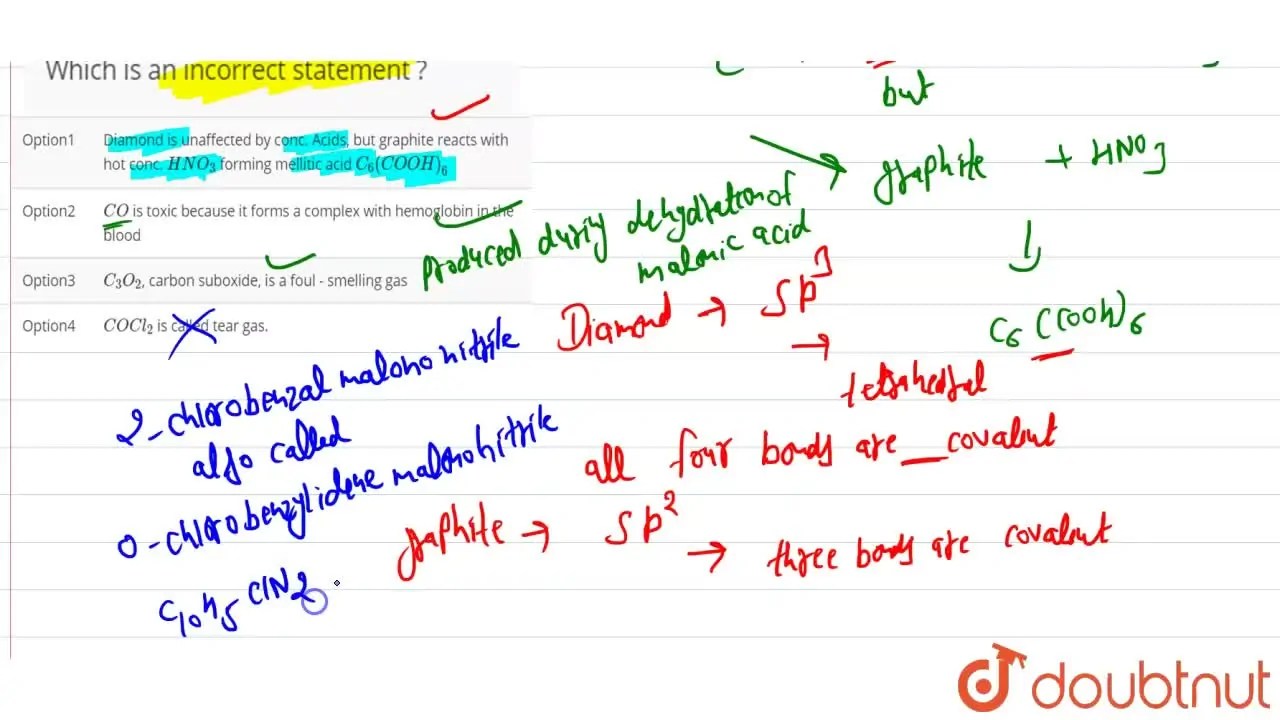 Which is an incorrect statement ?
Option1 Diamond is unaffected by conc. Acids, but graphite reacts with
hot conc. HNO₃ forming mellitic acid C₆(COOH)₆
Option2 CO is toxic because it forms a complex with hemoglobin in the
blood
Option3 C₃O₂, carbon suboxide, is a foul - smelling gas
Option4 COCl₂ is called tear gas.
but
graphite + HNO3
C6 (COOH)6
produced during dehydration of
malonic acid
Diamond → sp3
→ tetrahedral
all four bonds are covalent
graphite → sp2
→ three bonds are covalent
2-chlorobenzal malononitrile
also called
o-chlorobenzylidene malononitrile
C10H5ClN2
doubtnut